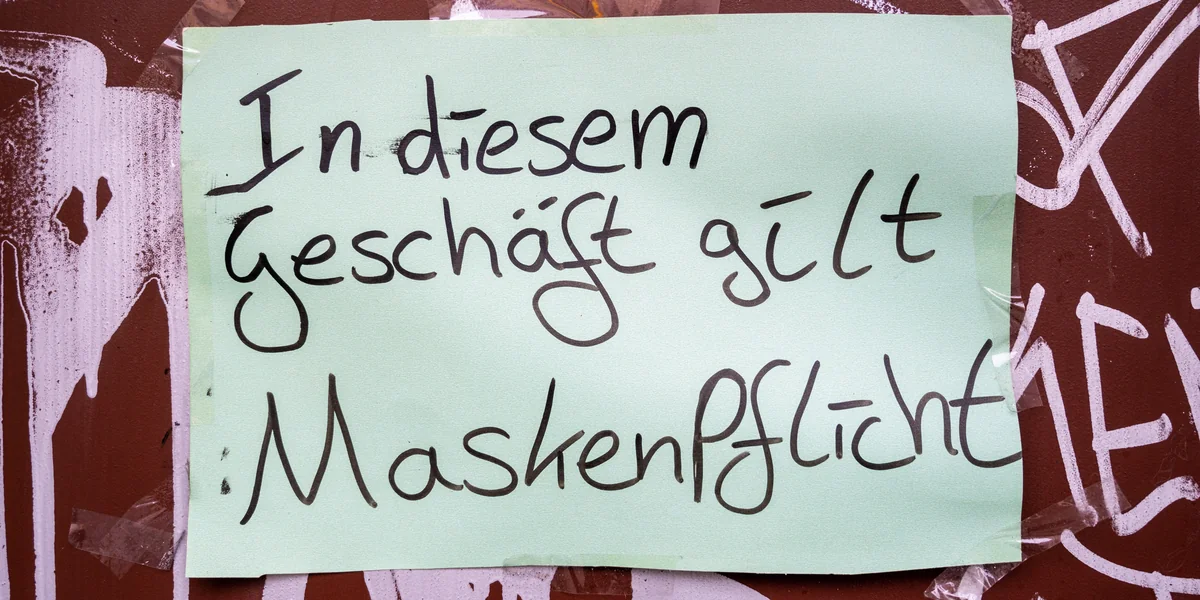 In diesem
Geschäft gilt
MaskenPflicht